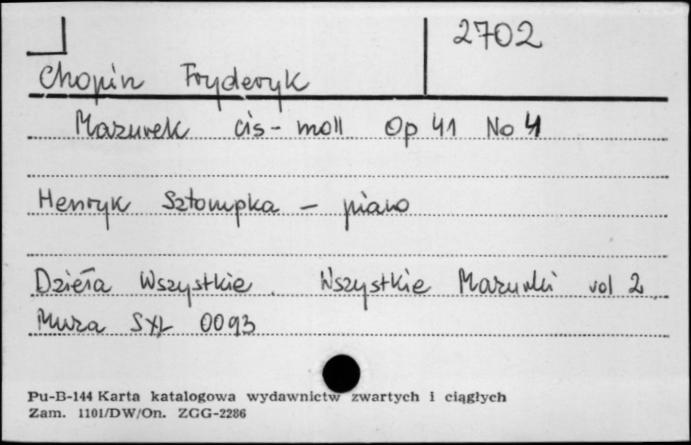 2702
Chopin Fryderyk
Mazurek cis-moll Op 41 No 4
Henryk Sztompka - piano
Dzieła Wszystkie. Wszystkie Mazurki vol 2
Muza SXL 0093
Pu-B-144 Karta katalogowa wydawnictw zwartych i ciągłych
Zam. 1101/DW/On. ZGG-2286